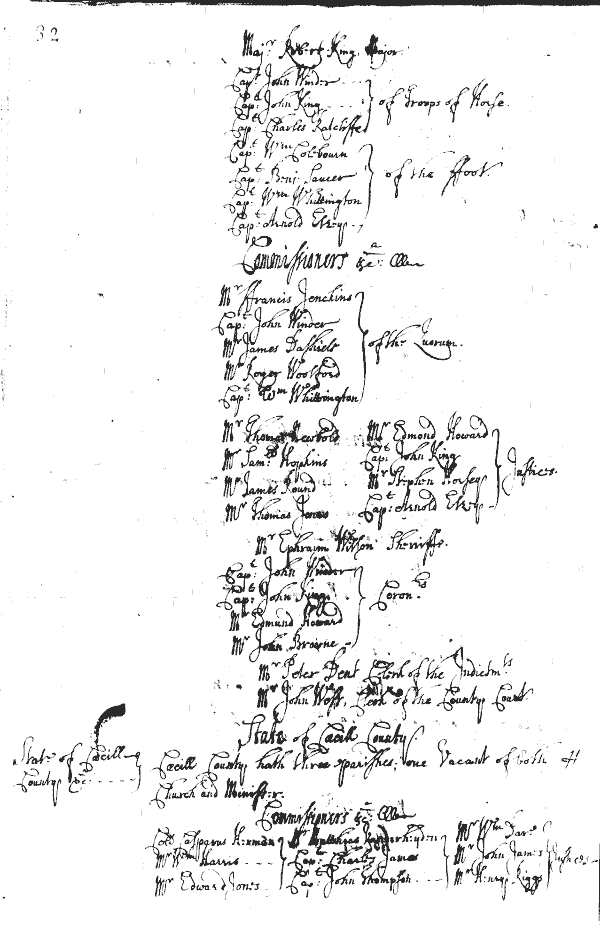 32
Majr. Robert King, Major.
Capt. John Winder
Capt. John King
Capt. Charles Ratcliffe
of Troops of Horse.
Capt. Wm Colbourn
Capt. Benj. Sawser
Capt. Wm Whittington
Capt. Arnold Elzey
of the ffoot
Commissioners &ca.
Mr ffrancis Jenckins
Capt. John Winder
Mr James Dashiele
Mr Roger Woolford
Capt. Wm Whittington
of the Quorum.
Mr Thomas Newbold
Mr Edmond Howard
Mr Saml Hopkins
Capt. John King
Mr James Round
Mr Stephen Horsey
Mr Thomas Jones
Capt. Arnold Elzey
Justices.
Mr Ephraim Wilson Sherriffe.
Capt. John Winder
Capt. John King
Mr Edmund Howard
Mr John Browne
Coron.rs
Mr Peter Dent Clerk of the Indictmts
Mr John West, Clerk of the County Court.
State of Cæcill County
State of Cæcill
County &c.
Cæcill County hath three parishes; one Vacant of both
Church and Minister.
Commissioners &ca.
Coll. Casparus Herman
Mr Matthias Vanderheyden
Mr Wm Dare
Mr Wm Harris
Capt. Charles James
Mr John James
Mr Edward Jones
Capt. John Thompson
Mr Henry Riggs
Justices